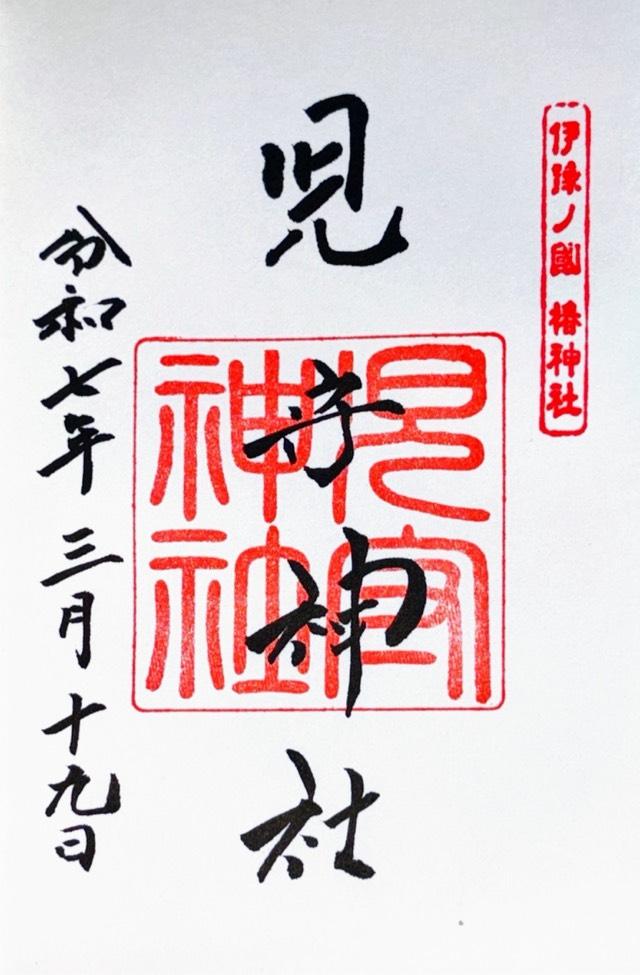 伊豫ノ國 椿神社
児守神社
児守神社
令和七年三月十九日